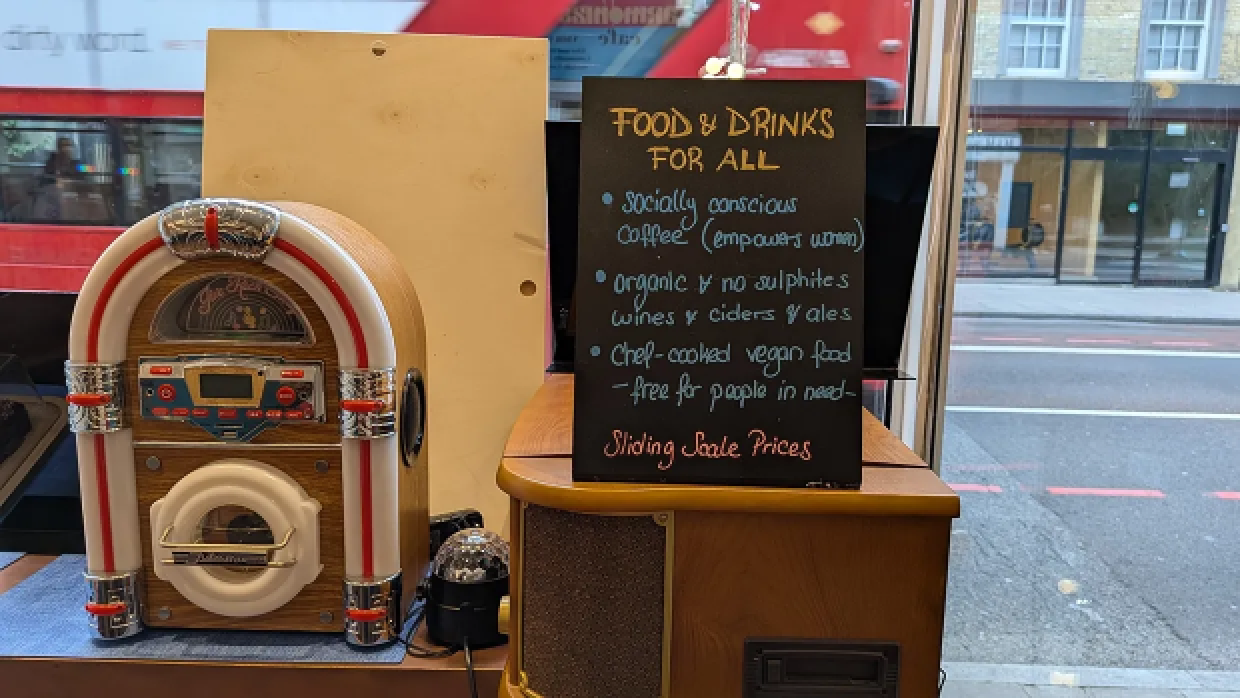 dirty word.
FOOD & DRINKS
FOR ALL
• socially conscious
coffee (empowers women)
• organic & no sulphites
wines & ciders & ales
• Chef-cooked vegan food
- free for people in need-
Sliding Scale Prices